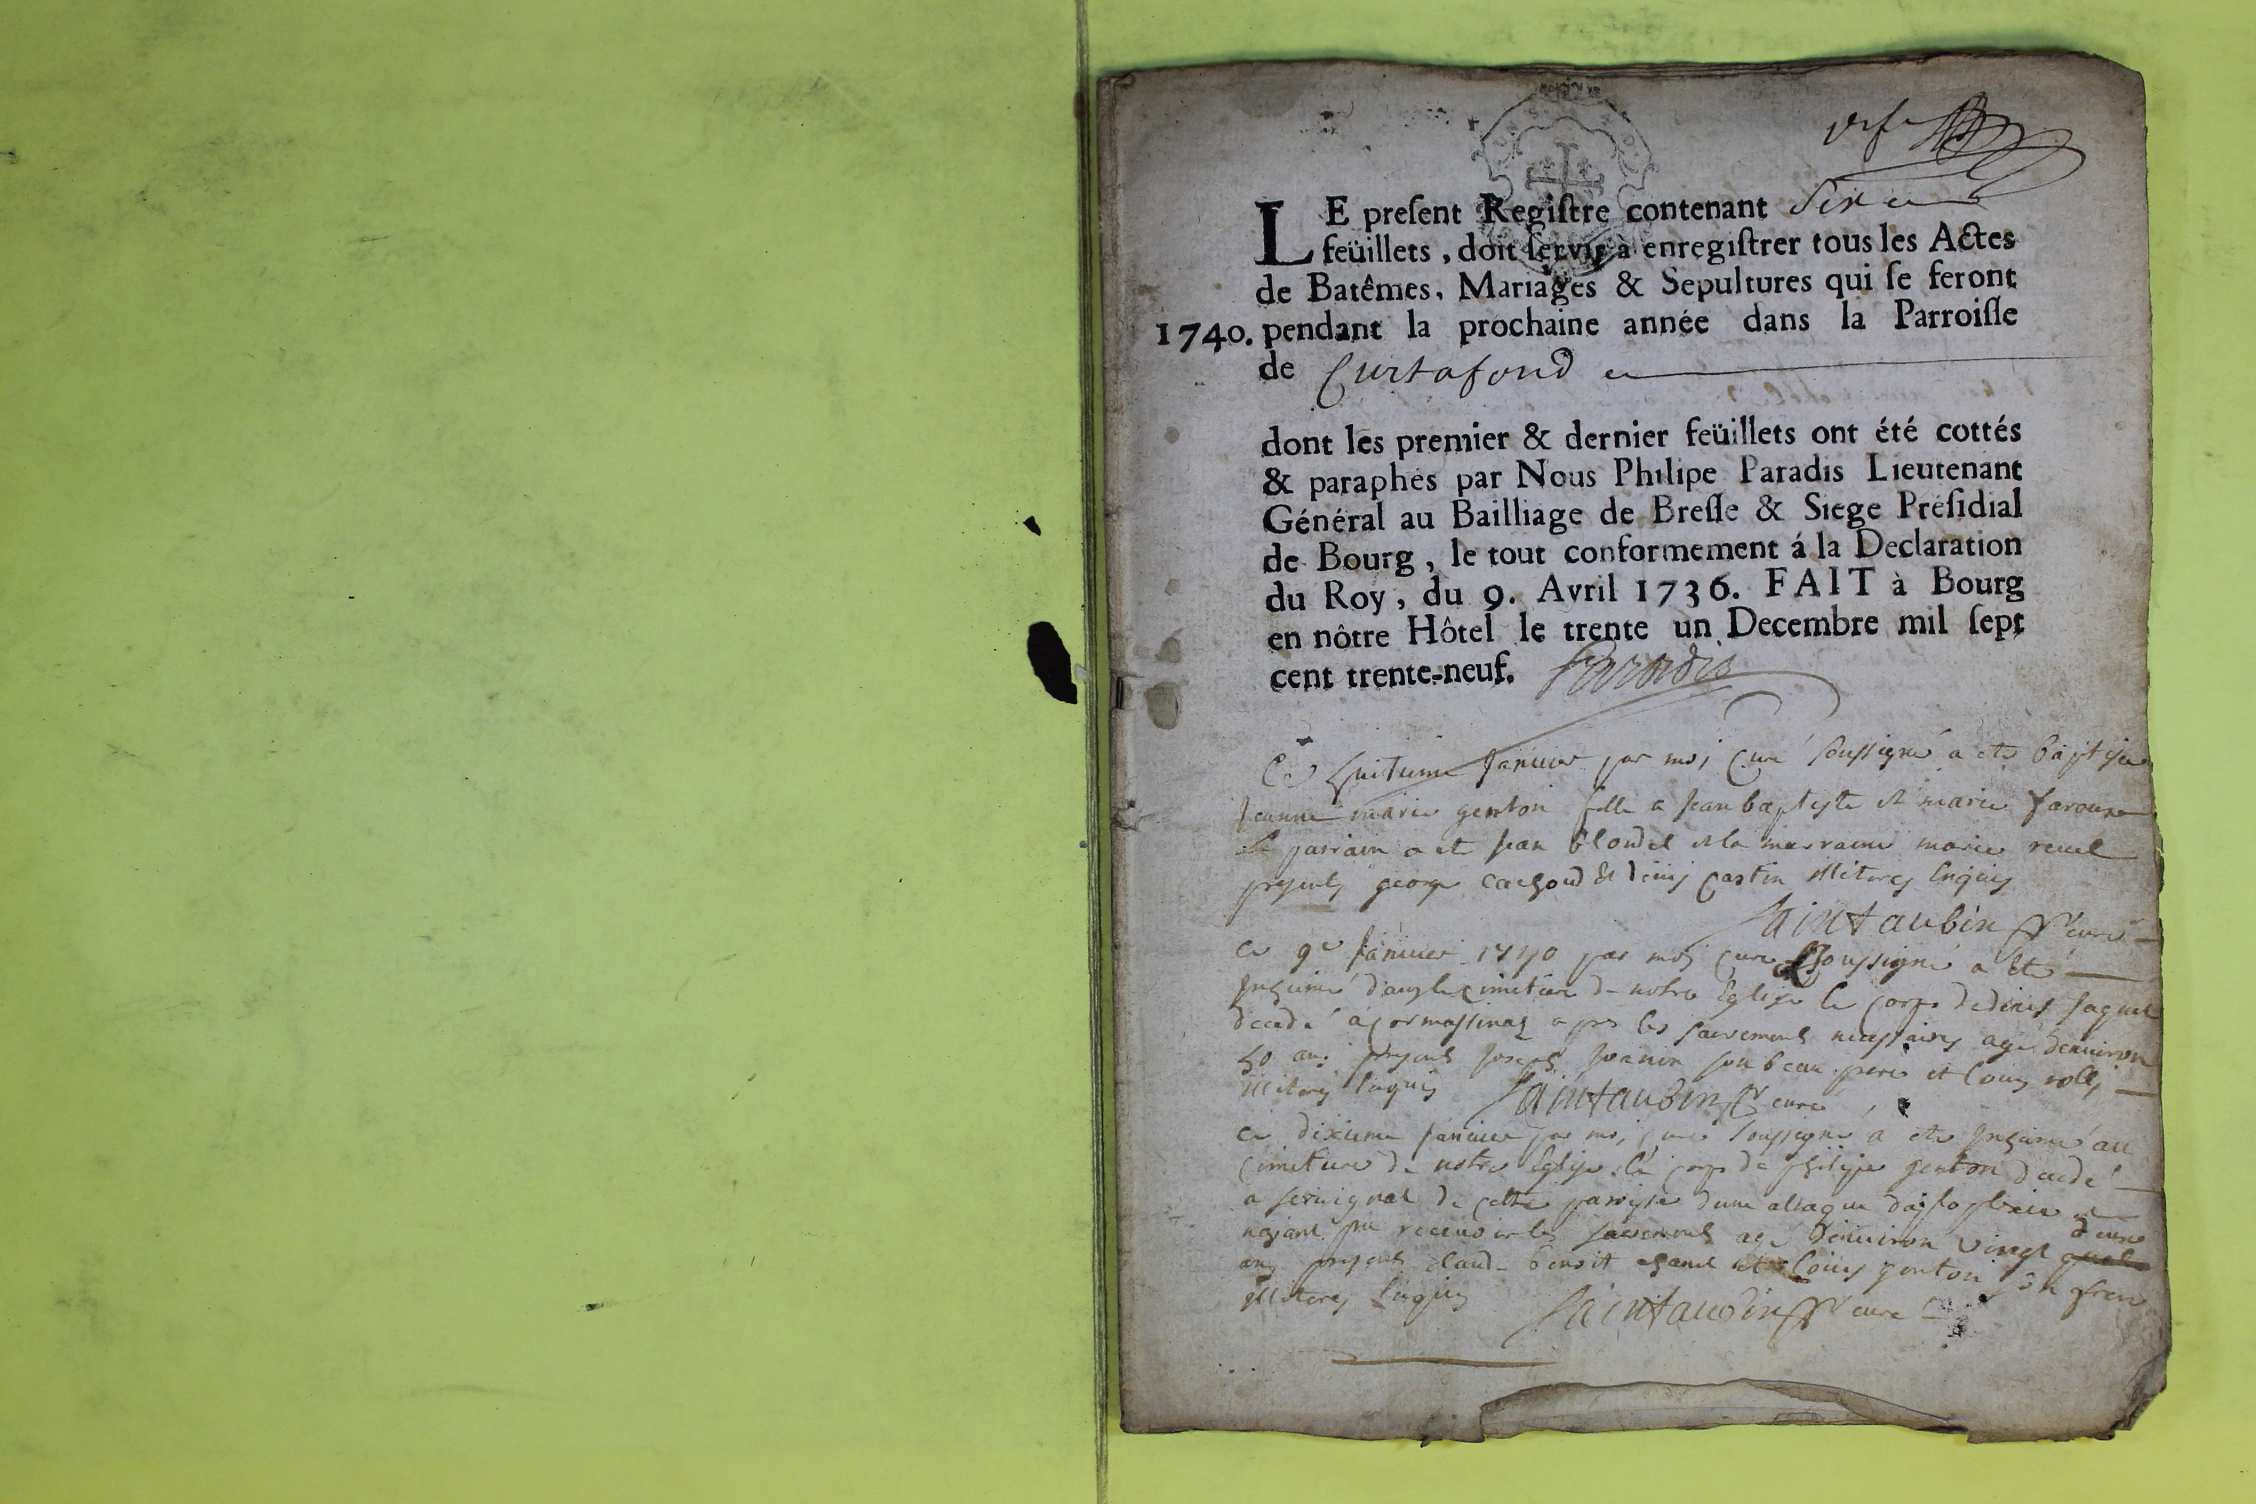 LE present Registre contenant Six
feüillets, doit servir à enregistrer tous les Actes
de Batêmes, Mariages & Sepultures qui se feront
1740. pendant la prochaine année dans la Parroisse
de Curtafond
dont les premier & dernier feüillets ont été cottés
& paraphés par Nous Philipe Paradis Lieutenant
Général au Bailliage de Bresse & Siege Présidial
de Bourg, le tout conformement á la Declaration
du Roy, du 9. Avril 1736. FAIT à Bourg
en nôtre Hôtel le trente un Decembre mil sept
cent trente-neuf. Paradis
Ce huitieme Janvier par moi curé soussigné a ete baptisée
Jeanne marie genton fille a Jean baptiste et marie
le parrain a ete Jean blondel et la marraine marie revel
presents george cachoud et denis illiteres enquis
Saintaubin curé
ce 9e Janvier 1740 par moi curé soussigné a eté
Inhumé dans le cimetiere de notre Eglise le corps de denis
decedé a cormassinas apres les sacrements necessaires agé denviron
50 ans presents Joseph Joanon son beau pere et Louis
illiteres enquis Saintaubin curé
ce dixieme Janvier par moi curé soussigné a ete Inhumé au
cimetiere de notre Eglise le corps de philipe genton decedé
a servignat de cette parroisse dune attaque
nayant pu recevoir les sacrements agé denviron vingt deux
ans presents claude benoit et Louis genton son frere
illiteres enquis Saintaubin curé